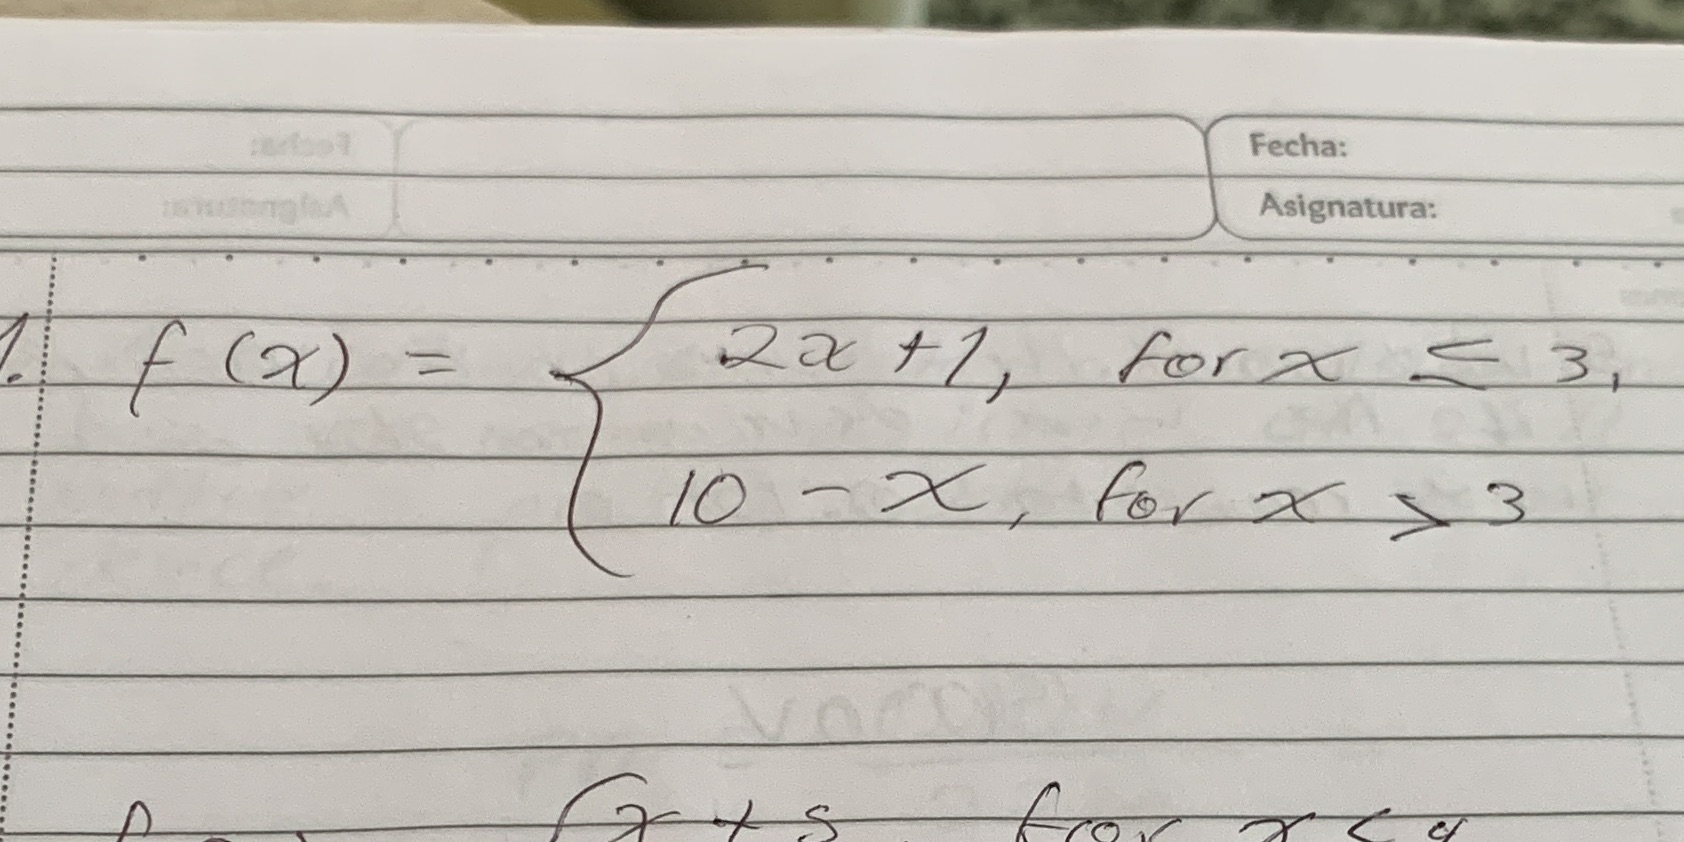 Fecha:
Asignatura:
1. f(x) = { 2x+1, for x ≤ 3,
10 - x, for x > 3
x + 5 for x <